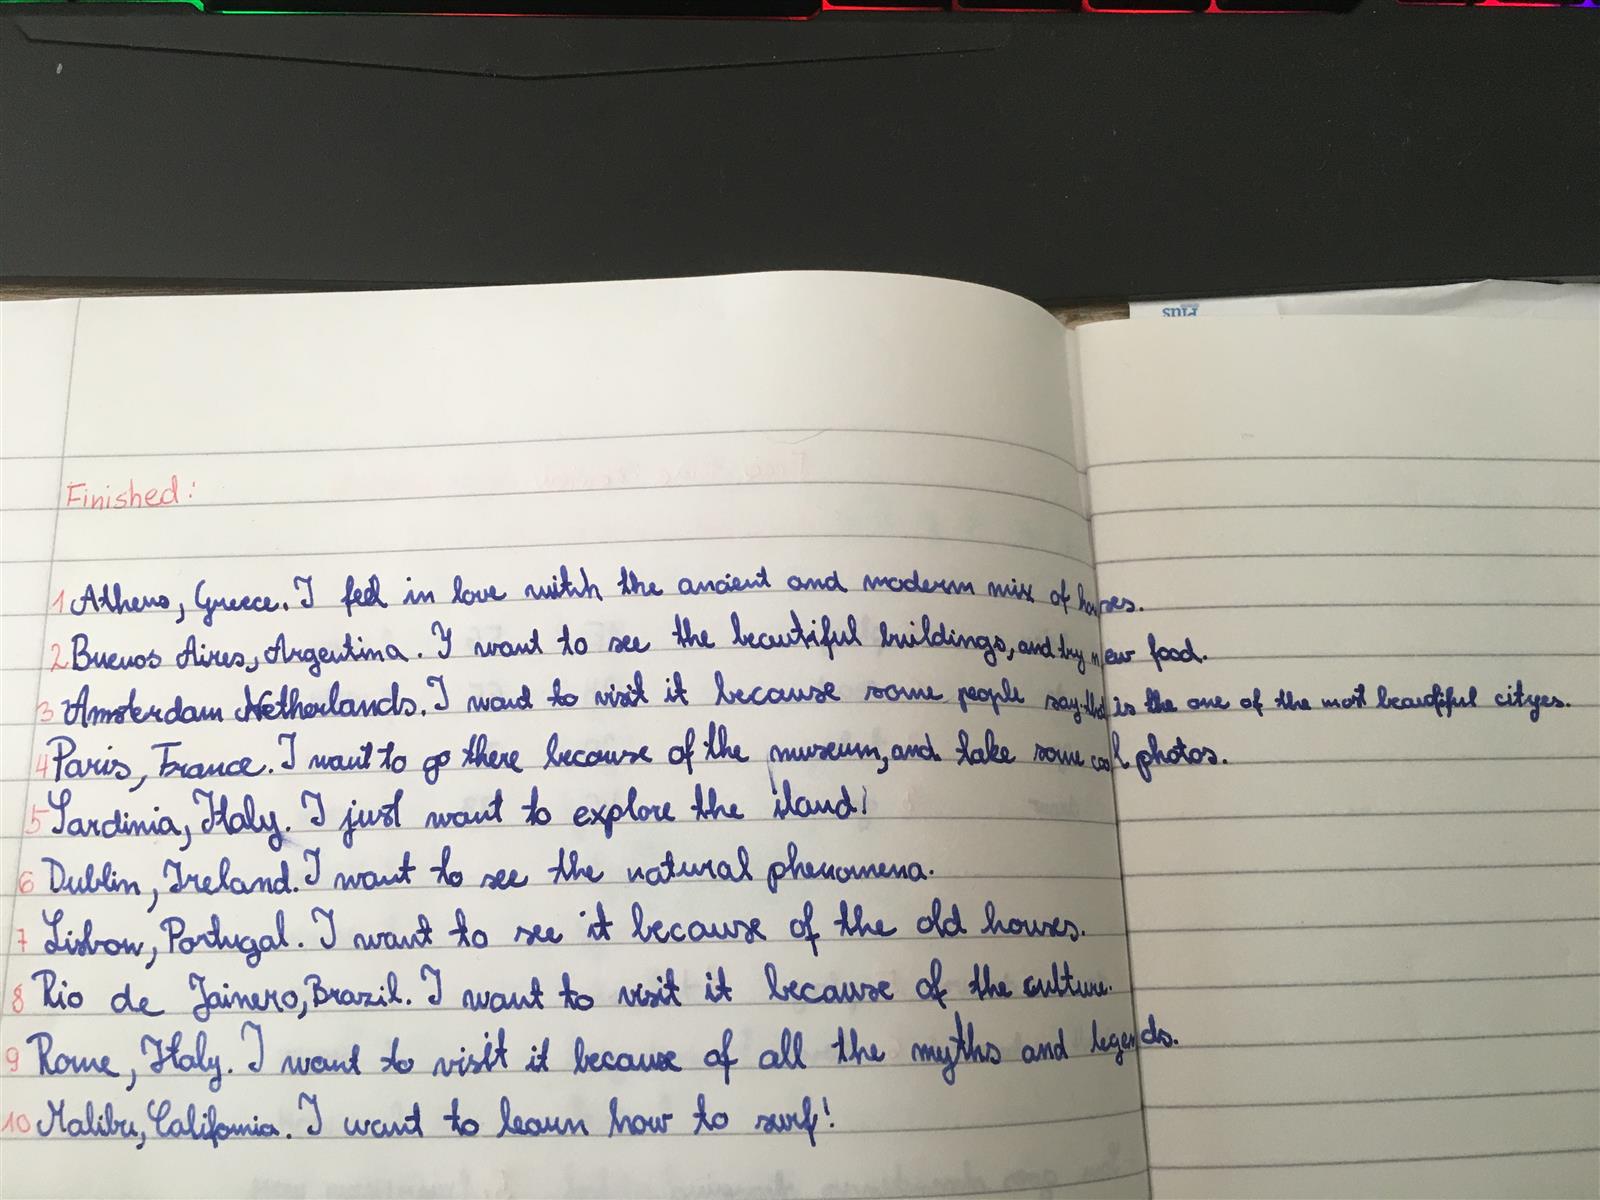 Plus
Finished:
1 Athens, Greece. I feel in love witch the ancient and modern mix of houses.
2 Buenos Aires, Argentina. I want to see the beautiful buildings, and try new food.
3 Amsterdam Netherlands. I want to visit it because some people say that is the one of the most beautiful cityes.
4 Paris, France. I want to go there because of the museum, and take some cool photos.
5 Sardinia, Italy. I just want to explore the iland!
6 Dublin, Ireland. I want to see the natural phenomena.
7 Lisbon, Portugal. I want to see it because of the old houses.
8 Rio de Jainero, Brazil. I want to visit it because of the culture.
9 Rome, Italy. I want to visit it because of all the myths and legends.
10 Malibu, California. I want to learn how to surf!